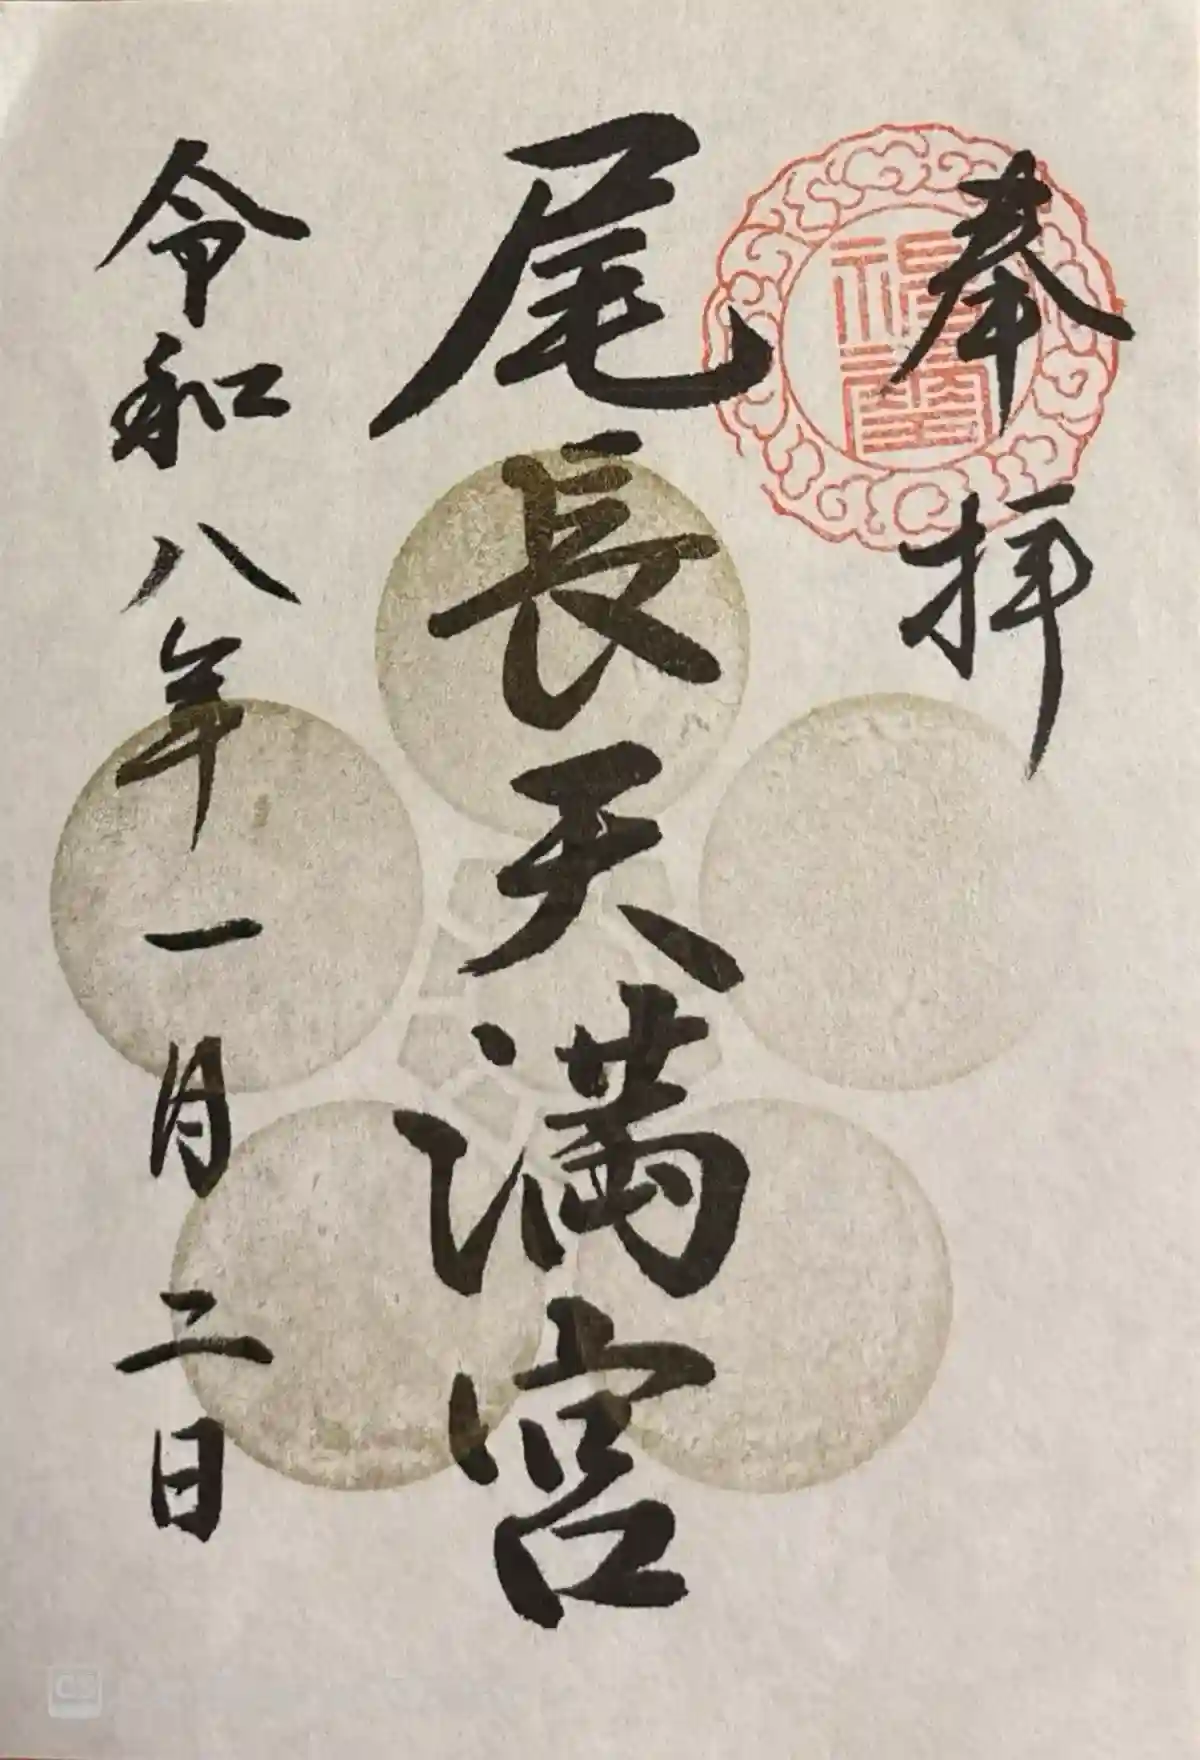 奉拝
尾長天満宮
令和八年一月二日
CS